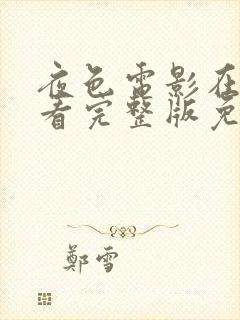 夜色電影在
看完整版免
鄭雪